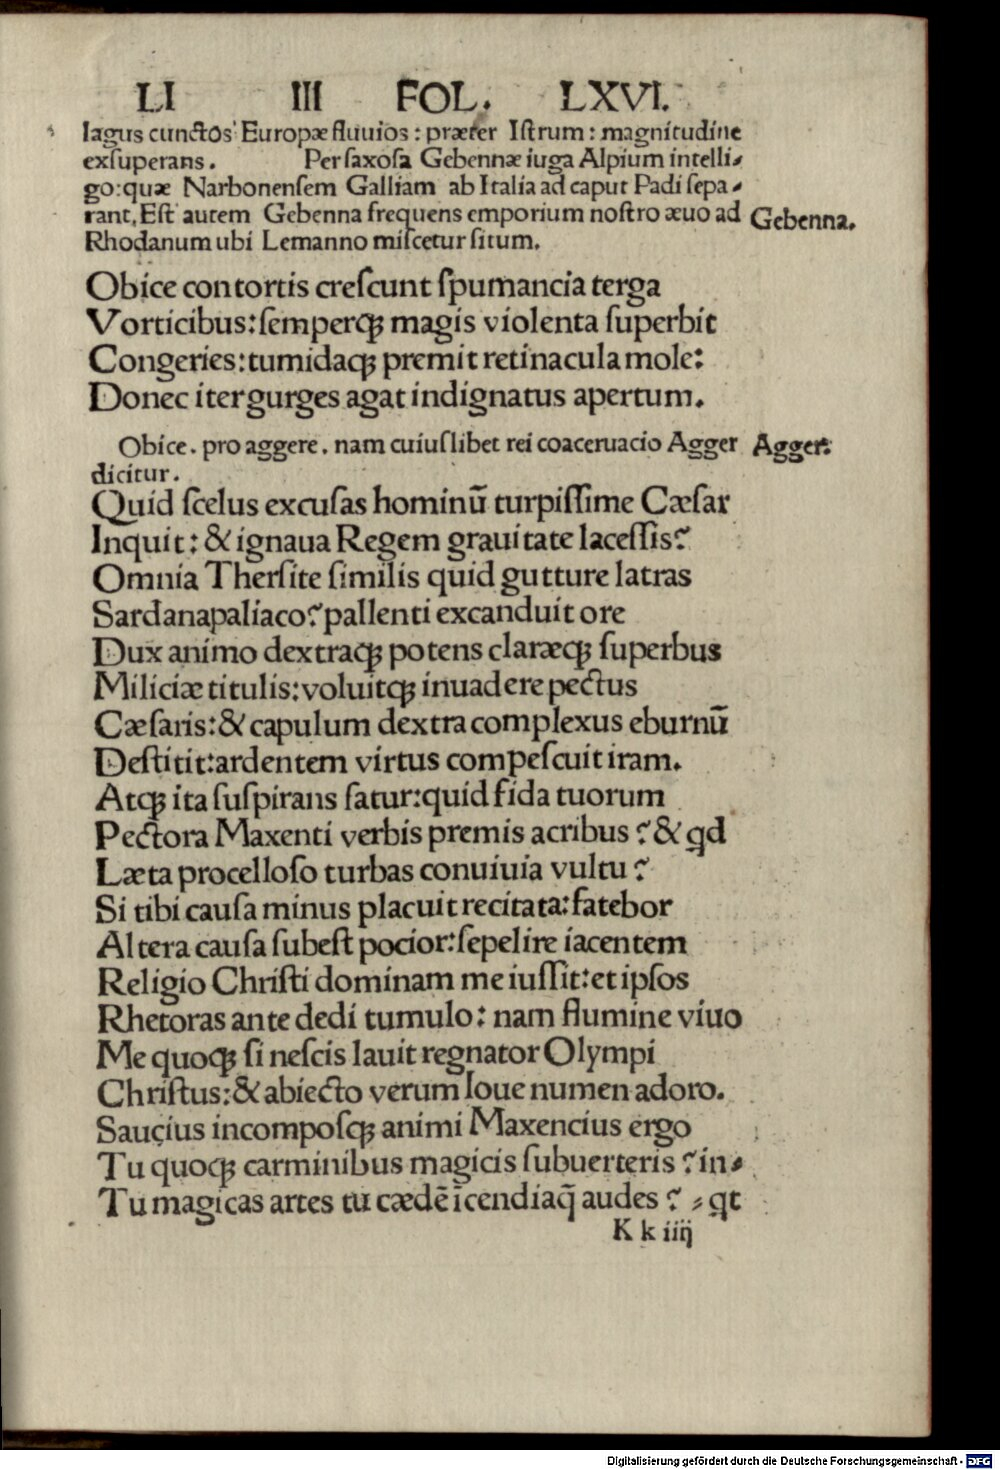 LI III FOL. LXVI.
lagus cunctos Europæ fluuios : præter Iſtrum : magnitudine
exſuperans. Per ſaxoſa Gebennæ iuga Alpium intelli-
go: quæ Narbonenſem Galliam ab Italia ad caput Padi ſepa-
rant. Eſt autem Gebenna frequens emporium noſtro æuo ad
Gebenna.
Rhodanum ubi Lemanno miſcetur ſitum.
Obice contortis creſcunt ſpumancia terga
Vorticibus: ſemperqꝫ magis violenta ſuperbit
Congeries: tumidaqꝫ premit retinacula mole:
Donec iter gurges agat indignatus apertum.
Obice. pro aggere. nam cuiuſlibet rei coaceruacio Agger
Agger.
dicitur.
Quid ſcelus excuſas hominū turpiſſime Cæſar
Inquit: & ignaua Regem grauitate laceſſis?
Omnia Therſite ſimilis quid gutture latras
Sardanapaliaco? pallenti excanduit ore
Dux animo dextraqꝫ potens claræqꝫ ſuperbus
Miliciæ titulis: voluitqꝫ inuadere pectus
Cæſaris: & capulum dextra complexus eburnū
Deſtitit: ardentem virtus compeſcuit iram.
Atqꝫ ita ſuſpirans fatur: quid fida tuorum
Pectora Maxenti verbis premis acribus? & qd
Læta procelloſo turbas conuiuia vultu?
Si tibi cauſa minus placuit recitata: fatebor
Altera cauſa ſubeſt pocior: ſepelire iacentem
Religio Chriſti dominam me iuſſit: et ipſos
Rhetoras ante dedi tumulo: nam flumine viuo
Me quoqꝫ ſi neſcis lauit regnator Olympi
Chriſtus: & abiecto verum Ioue numen adoro.
Saucius incompoſqꝫ animi Maxencius ergo
Tu quoqꝫ carminibus magicis ſubuerteris? in-
Tu magicas artes tu cædē īcendiaq̄ audes? -qt
K k iiij
Digitalisierung gefördert durch die Deutsche Forschungsgemeinschaft - DFG